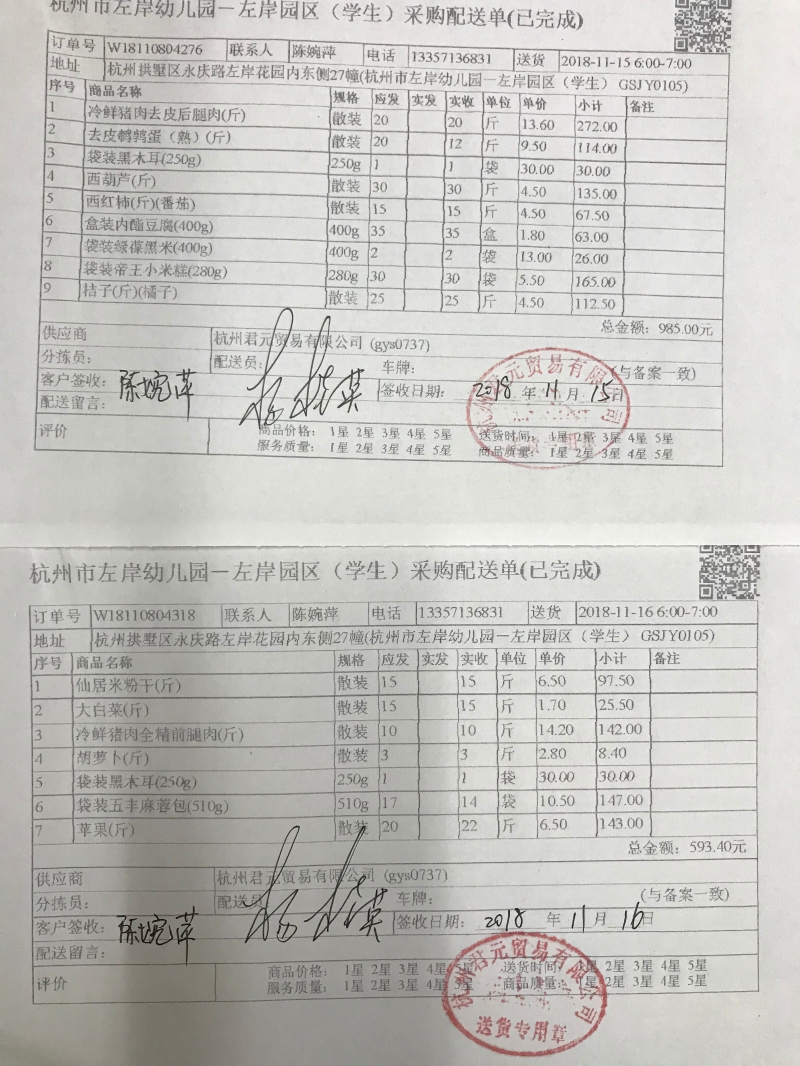 杭州市左岸幼儿园一左岸园区（学生）采购配送单(已完成)
订单号 W18110804276 联系人 陈婉萍 电话 13357136831 送货 2018-11-15 6:00-7:00
地址 杭州拱墅区永庆路左岸花园内东侧27幢(杭州市左岸幼儿园一左岸园区（学生） GSJY0105)
序号 商品名称 规格 应发 实发 实收 单位 单价 小计 备注
1 冷鲜猪肉去皮后腿肉(斤) 散装 20 20 斤 13.60 272.00
2 去皮鹌鹑蛋（熟）(斤) 散装 20 12 斤 9.50 114.00
3 袋装黑木耳(250g) 250g 1 1 袋 30.00 30.00
4 西葫芦(斤) 散装 30 30 斤 4.50 135.00
5 西红柿(斤)(番茄) 散装 15 15 斤 4.50 67.50
6 盒装内酯豆腐(400g) 400g 35 35 盒 1.80 63.00
7 袋装绿葆黑米(400g) 400g 2 2 袋 13.00 26.00
8 袋装帝王小米糕(280g) 280g 30 30 袋 5.50 165.00
9 桔子(斤)(橘子) 散装 25 25 斤 4.50 112.50
总金额：985.00元
供应商 杭州君元贸易有限公司 (gys0737)
分拣员： 配送员： 车牌： (与备案一致)
客户签收：陈婉萍 签收日期： 2018 年 11 月 15日
配送留言：
评价 商品价格： 1星 2星 3星 4星 5星 送货时间： 1星 2星 3星 4星 5星
服务质量： 1星 2星 3星 4星 5星 商品质量： 1星 2星 3星 4星 5星
杭州君元贸易有限公司
杭州市左岸幼儿园一左岸园区（学生）采购配送单(已完成)
订单号 W18110804318 联系人 陈婉萍 电话 13357136831 送货 2018-11-16 6:00-7:00
地址 杭州拱墅区永庆路左岸花园内东侧27幢(杭州市左岸幼儿园一左岸园区（学生） GSJY0105)
序号 商品名称 规格 应发 实发 实收 单位 单价 小计 备注
1 仙居米粉干(斤) 散装 15 15 斤 6.50 97.50
2 大白菜(斤) 散装 15 15 斤 1.70 25.50
3 冷鲜猪肉全精前腿肉(斤) 散装 10 10 斤 14.20 142.00
4 胡萝卜(斤) 散装 3 3 斤 2.80 8.40
5 袋装黑木耳(250g) 250g 1 1 袋 30.00 30.00
6 袋装五丰麻蓉包(510g) 510g 17 14 袋 10.50 147.00
7 苹果(斤) 散装 20 22 斤 6.50 143.00
总金额：593.40元
供应商 杭州君元贸易有限公司 (gys0737)
分拣员： 配送员 车牌： (与备案一致)
客户签收：陈婉萍 签收日期： 2018 年 11 月 16日
配送留言：
评价 商品价格： 1星 2星 3星 4星 5星 送货时间： 1星 2星 3星 4星 5星
服务质量： 1星 2星 3星 4星 5星 商品质量： 1星 2星 3星 4星 5星
杭州君元贸易有限公司
送货专用章